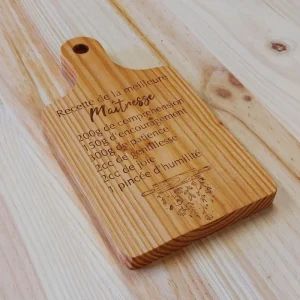 Recette de la meilleure
Maîtresse
200g de compréhension
150g d'encouragement
300g de patience
2cc de gentillesse
2cc de joie
1 pincée d'humilité